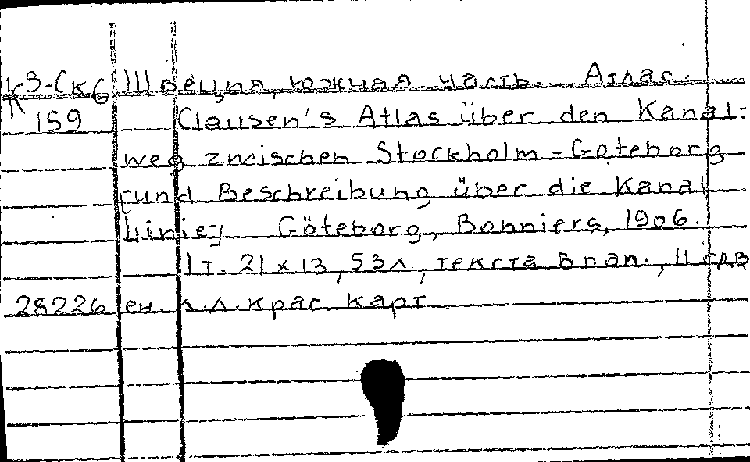 К3-Ск6 Швеция, южная часть. Атлас.
К 159 Clausen's Atlas über den Kanal-
weg zwischen Stockholm-Göteborg
rund Beschreibung über die Kanal
linie. Göteborg, Bonniers, 1906.
1 т. 21 x 13, 53 л, текста в пап., 11 сдв
28226 ен. л.л. крас. карт